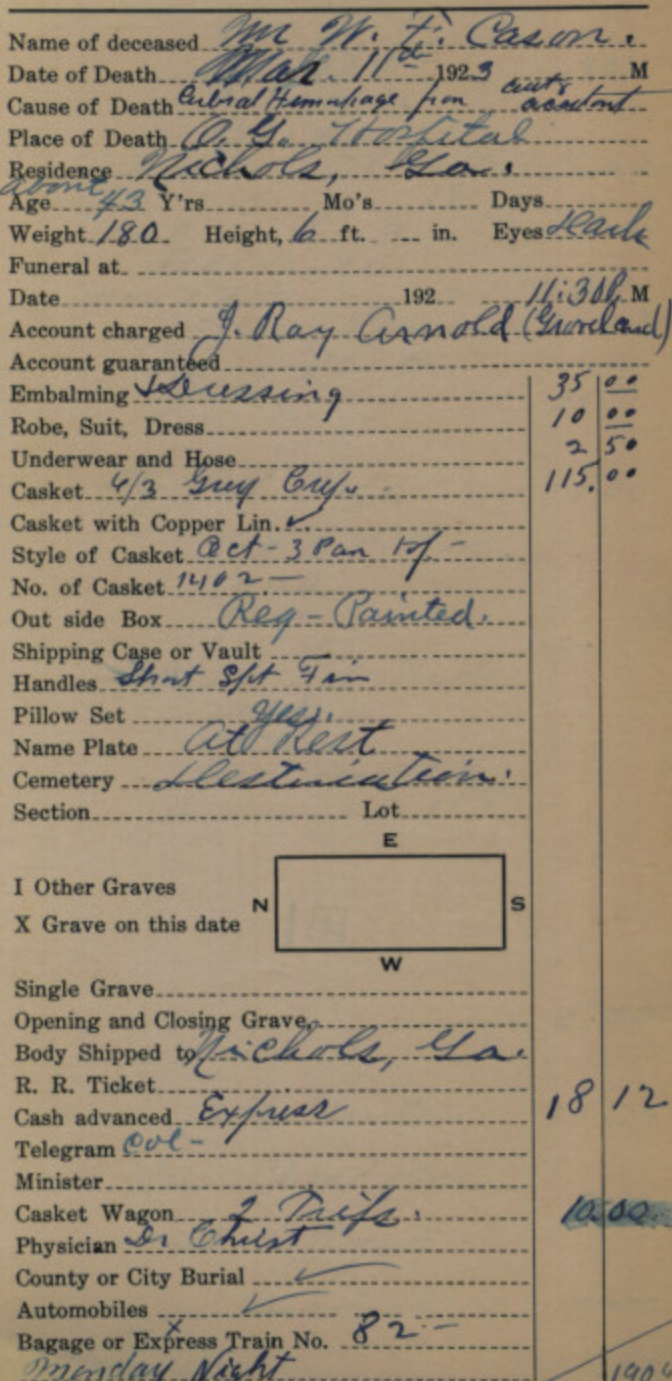 Name of deceased Mr W. F. Cason.
Date of Death Mar. 11th 1923 M
Cause of Death Cerbral Hemmhage from auto accident
Place of Death O. G. Hospital
Residence Nichols, Ga.
about
Age 43 Y'rs Mo's Days
Weight 180 Height, 6 ft. in. Eyes Dark
Funeral at
Date 192 11:30 P. M
Account charged J. Ray Arnold (Groveland)
Account guaranteed
Embalming & Dressing 35 00
Robe, Suit, Dress 10 00
Underwear and Hose 2 50
Casket 6/3 Grey 115.00
Casket with Copper Lin.
Style of Casket Oct - 3 Pan
No. of Casket 1402 -
Out side Box Reg - Painted.
Shipping Case or Vault
Handles Short
Pillow Set Yes.
Name Plate At Rest
Cemetery Destination.
Section Lot
E
I Other Graves
N S
X Grave on this date
W
Single Grave
Opening and Closing Grave,
Body Shipped to Nichols, Ga.
R. R. Ticket
Cash advanced Express 18 12
Telegram Col -
Minister
Casket Wagon 2 Trips. 10.00
Physician Dr Christ
County or City Burial ✓
Automobiles ✓
Bagage or Express Train No. 82 -
Monday Night